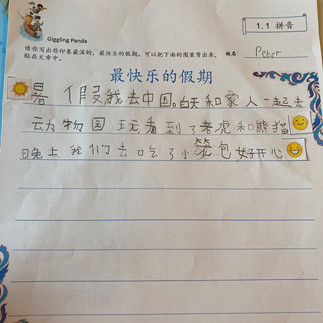 Giggling Panda
1.1 拼音
请你写出你印象最深的，最快乐的假期。可以把下面的图案剪出来，
贴在文章中。
姓名: Peter
最快乐的假期
暑假我去中国。白天和家人一起去
动物园玩看到了老虎和熊猫
晚上我们去吃了小笼包好开心